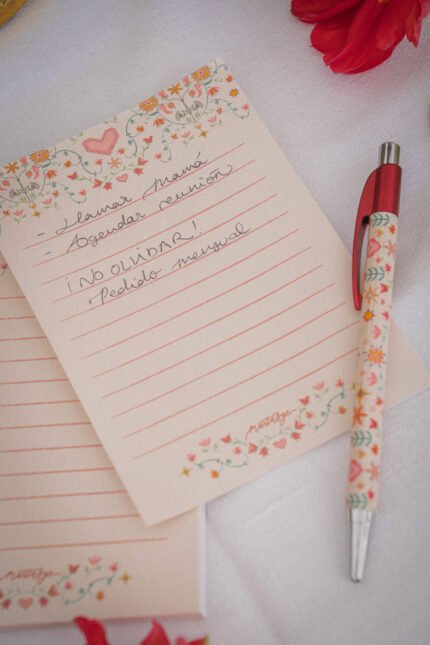 - Llamar Mamá
- Agendar reunión
¡NO OLVIDAR!
Pedido mensual